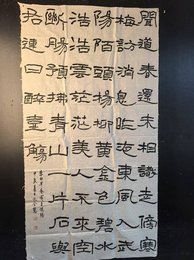 聞道春還未相識走傍寒
梅訪消息昨夜東風入武
陽陌頭楊柳黃金色碧水
浩浩雲茫茫美人不來空
斷腸預拂青山一片石與
君連日醉壺觴